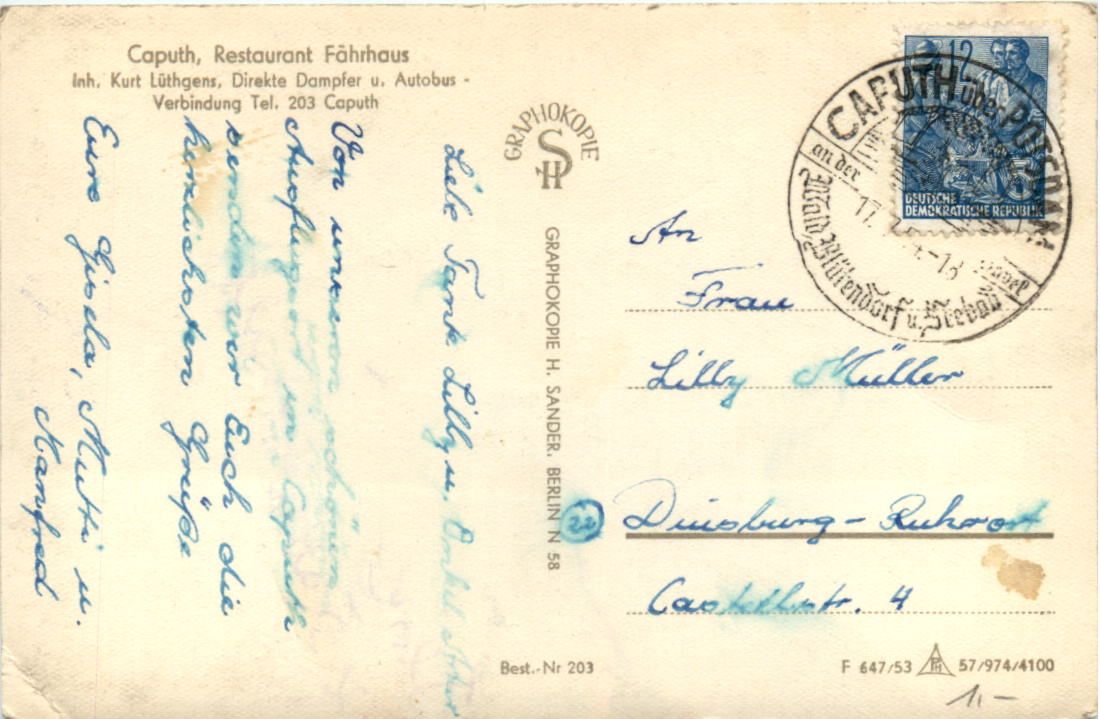 Caputh, Restaurant Fährhaus
Inh. Kurt Lüthgens, Direkte Dampfer u. Autobus -
Verbindung Tel. 203 Caputh
Liebe Tante Lilly u. Onkel
Von unserem schönen
Ausflugsort in Caputh
senden wir Euch die
herzlichsten Grüße
Eure Gisela, Mutti u.
Manfred
GRAPHOKOPIE
SH
GRAPHOKOPIE H. SANDER, BERLIN N 58
Best.-Nr 203
12
DEUTSCHE
DEMOKRATISCHE REPUBLIK
CAPUTH über POTSDAM
an der Havel
Wald Blütendorf u. Seebad
17.
-18
An
Frau
Lilly Müller
22
Duisburg-Ruhrort
Castellstr. 4
F 647/53 57/974/4100
1,-